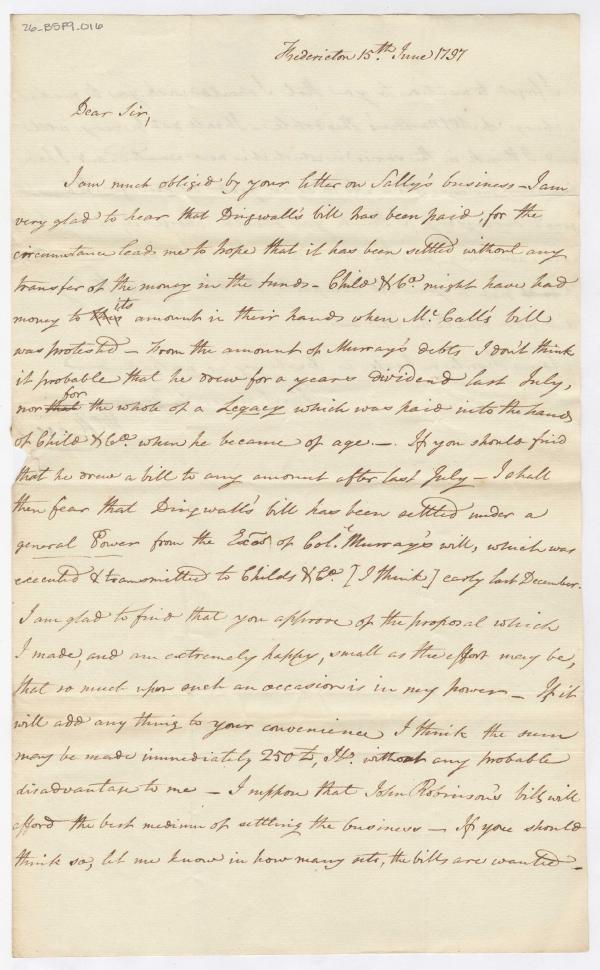 26-B5F9-016
Fredericton 15th June 1797
Dear Sir,
I am much obliged by your letter on Sally's business – I am
very glad to hear that Dingwall's bill has been paid, for the
circumstance leads me to hope that it has been settled without any
transfer of the money in the funds – Child & Co. might have had
money to its amount in their hands when Mr. Call's bill
was protested – From the amount of Murray's debts I don't think
it probable that he drew for a years dividend last July,
nor that for the whole of a Legacy which was paid into the hands
of Child & Co. when he became of age. – If you should find
that he drew a bill to any amount after last July – I shall
then fear that Dingwall's bill has been settled under a
general Power from the Exōs of Col. Murray's will, which was
executed & transmitted to Childs & Co. [I think] early last December.
I am glad to find that you approve of the proposal which
I made, and am extremely happy, small as the effort may be,
that so much upon such an occasion is in my power – If it
will add any thing to your convenience I think the sum
may be made immediately 250 £, Stg. without any probable
disadvantage to me – I suppose that John Robinson's bills will
afford the best medium of settling the business – If you should
think so, let me know in how many sets, the bills are wanted –